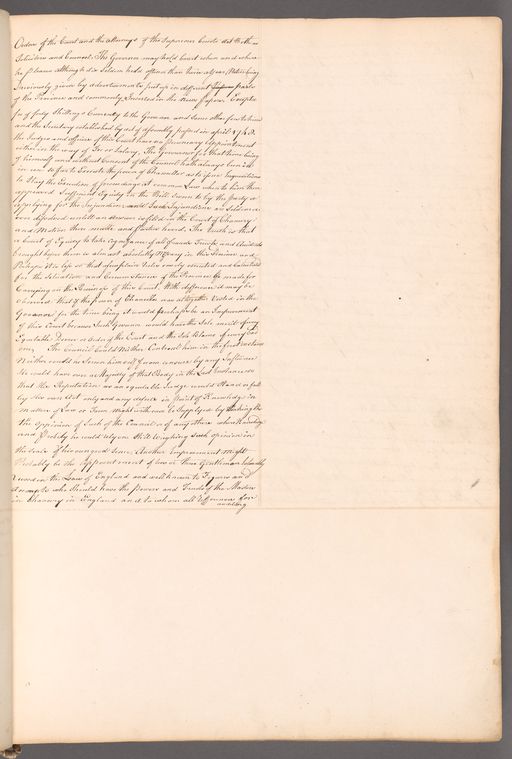 Orders of the Court and the attorneys of the Supream Courts act both as
Solicitors and Council. The Governor may hold Court when and where
he Please although it is seldom held oftner than twice a year, Notice being
Previously given by advertisements put up in different parts
of the Province and commonly Inserted in the News Papers. Except
fees of forty Shillings Currently to the Governor and some other fees to him
and the Secretary established by act of assembly passed in april 1748
the Judges and officers of this Court have no Pecuniary Appointment
either in the way of Fees or Salary. The Governor for that time being
of himself and without Consent of the Council hath always been
in use so far to Exercise the power of Chancellor as to issue Injunctions
to Stay the Execution of proceedings at common Law where to him there
appeared Sufficient Equity in the Bill sworn to by the party
applying for the Injunction and Such Injunction is seldom
ever disolved untill an answer is filed in the Court of Chancery
and Motion there made and Parties heard. The truth is that
a Court of Equity to take Cognizance of all frauds Trusts and
brought before them is almost absolutely Necessary in this Province and
Perhaps it is so that a
for the Situation and Circumstances of the Province be made for
Carrying on the Business of this Court. With deference it may be
Observed that if the power of Chancellor was altogether Vested in the
Governor for the time being it would perhaps be an Improvement
of this Court because Such Governor would have the Sole merit of every
Equitable Decree or order of the Court and the Sole Blame of every
one. The Council Could Neither Controul him in the first
Neither could he Screen himself from censure by any
He would have no Majority of that Body in the Last
that the Reputation as an equitable Judge would Stand or fall
by his own Act only and any defect in point of Knowledge in
matters of Law or Form might with ease be Supplyed by taking the
the opinion of Such of the Council or of any others whose Knowledge
and Probity he could rely on Still Weighing Such opinion in
the Scale of his own good Sence. Another Improvement might
Probably be the appointment of one or two Gentlemen tolerably
Versed in the Laws of England and well known to Figures and
Accompts who Should have the Power and Trust of the Masters
in Chancery in England and to whom all Reference for
auditing